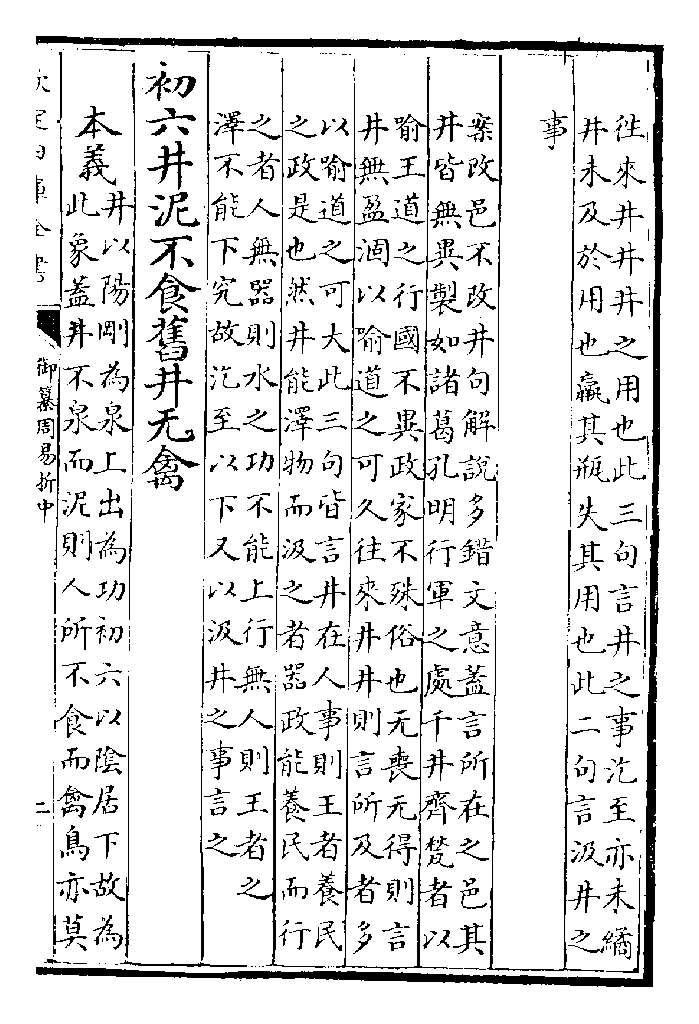 往來井井井之用也此三句言井之事汔至亦未繘
井未及於用也羸其瓶失其用也此二句言汲井之
事
案改邑不改井句解說多錯文意蓋言所在之邑其
井皆無異製如諸葛孔明行軍之處千井齊甃者以
喻王道之行國不異政家不殊俗也无喪无得則言
井無盈涸以喻道之可久往來井井則言所及者多
以喻道之可大此三句皆言井在人事則王者養民
之政是也然井能澤物而汲之者器政能養民而行
之者人無器則水之功不能上行無人則王者之
澤不能下究故汔至以下又以汲井之事言之
初六井泥不食舊井无禽
本義井以陽剛為泉上出為功初六以陰居下故為
此象蓋井不泉而泥則人所不食而禽鳥亦莫
欽定四庫全書
御纂周易折中